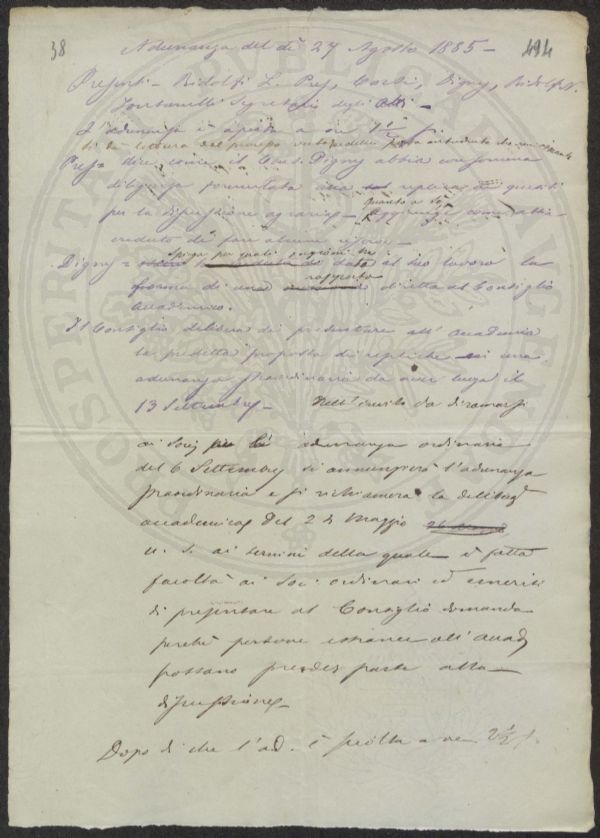 38 494
Adunanza del dì 27 Agosto 1885 -
Presenti - Ridolfi L. Pres, Digny, Ridolfi N.
Segretario degli Atti -
L'adunanza è aperta a ore 1 1/2 p.
Si dà lettura del processo verbale
Pres. dice come il Cons. Digny abbia con somma
diligenza formulata una replica ai quesiti
Quanto a sé
per la discussione agraria - aggiunge come abbia
creduto di fare alcune
Spiega per quali ragioni
Digny - dato al suo lavoro la
rapporto
forma di una diretta al Consiglio
Accademico.
Il Consiglio delibera di presentare all'Accademia
la predetta proposta di repliche in una
adunanza straordinaria da aver luogo il
13 Settembre - Nell'invito da diramarsi
ai Soci per la adunanza ordinaria
del 6 Settembre si annunzierà l'adunanza
straordinaria e si richiamerà la delibe
accademica del 2 Maggio
u. s. ai termini della quale è fatta
facoltà ai Soci ordinari ed emeriti
di presentare al Consiglio domanda
perché persone estranee all'Accad
possano prender parte alla
discussione -
Dopo di che l'ad. è sciolta a ore 2 1/2 p.